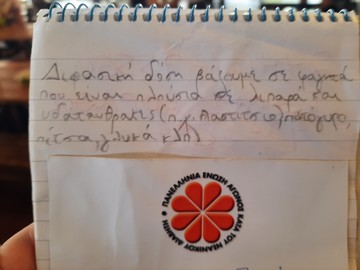 Διφασική δόση βάζουμε σε φαγητά
που είναι πλούσια σε λιπαρά και
υδατάνθρακες (π.χ. παστίτσιο,
πίτσα, γλυκά κλπ)
ΠΑΝΕΛΛΗΝΙΑ ΕΝΩΣΗ ΑΓΩΝΟΣ ΚΑΤΑ ΤΟΥ ΝΕΑΝΙΚΟΥ ΔΙΑΒΗΤΗ